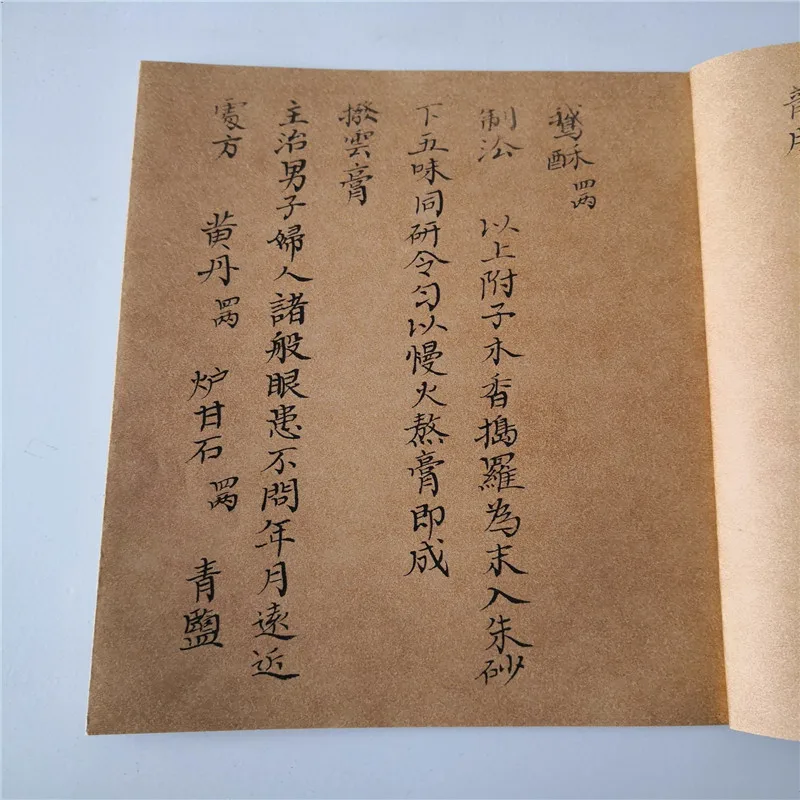 鵝酥 四两
制法 以上附子木香搗羅為末入朱砂
下五味同研令匀以慢火熬膏即成
撥雲膏
主治男子婦人諸般眼患不問年月遠近
處方 黄丹 四两 炉甘石 四两 青盬